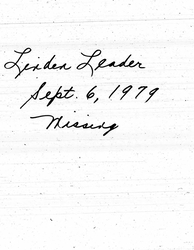 Linden Leader
Sept. 6, 1979
Missing